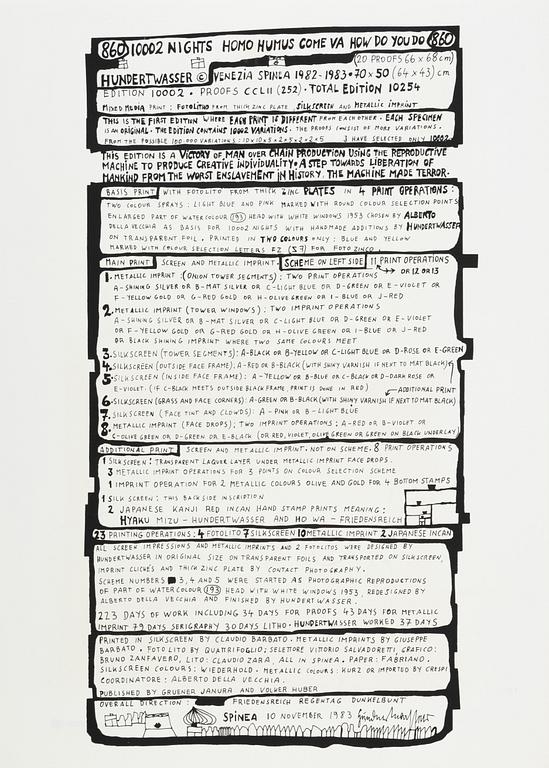 860 10002 NIGHTS HOMO HUMUS COME VA HOW DO YOU DO 860
(20 PROOFS 66 x 68 cm)
HUNDERTWASSER © VENEZIA SPINEA 1982-1983 • 70 x 50 (64 x 43) cm
EDITION 10002 • PROOFS CCLII (252) • TOTAL EDITION 10254
MIXED MEDIA PRINT: FOTOLITHO FROM THICK ZINC PLATE SILKSCREEN AND METALLIC IMPRINT
THIS IS THE FIRST EDITION WHERE EACH PRINT IS DIFFERENT FROM EACH OTHER. EACH SPECIMEN
IS AN ORIGINAL. THE EDITION CONTAINS 10002 VARIATIONS. THE PROOFS CONSIST OF MORE VARIATIONS.
FROM THE POSSIBLE 100.000 VARIATIONS: I HAVE SELECTED ONLY 10002.
THIS EDITION IS A VICTORY OF MAN OVER CHAIN PRODUCTION USING THE REPRODUCTIVE
MACHINE TO PRODUCE CREATIVE INDIVIDUALITY. A STEP TOWARDS LIBERATION OF
MANKIND FROM THE WORST ENSLAVEMENT IN HISTORY. THE MACHINE MADE TERROR.
BASIS PRINT WITH FOTOLITO FROM THICK ZINC PLATES IN 4 PRINT OPERATIONS:
TWO COLOUR SPRAYS: LIGHT BLUE AND PINK MARKED WITH ROUND COLOUR SELECTION POINTS
ENLARGED PART OF WATERCOLOUR 193 HEAD WITH WHITE WINDOWS 1953 CHOSEN BY ALBERTO
DELLA VECCHIA AS BASIS FOR 10002 NIGHTS WITH HANDMADE ADDITIONS BY HUNDERTWASSER
ON TRANSPARENT FOIL. PRINTED IN TWO COLOURS ONLY: BLUE AND YELLOW
MARKED WITH COLOUR SELECTION LETTERS FZ (57) FOR FOTO ZINCO
MAIN PRINT SCREEN AND METALLIC IMPRINT. SCHEME ON LEFT SIDE 11 PRINT OPERATIONS
OR 12 OR 13
1. METALLIC IMPRINT: (ONION TOWER SEGMENTS): TWO PRINT OPERATIONS
A-SHINING SILVER OR B-MAT SILVER OR C-LIGHT BLUE OR D-GREEN OR E-VIOLET OR
F-YELLOW GOLD OR G-RED GOLD OR H-OLIVE GREEN OR I-BLUE OR J-RED
2. METALLIC IMPRINT (TOWER WINDOWS): TWO IMPRINT OPERATIONS
A-SHINING SILVER OR B-MAT SILVER OR C-LIGHT BLUE OR D-GREEN OR E-VIOLET
OR F-YELLOW GOLD OR G-RED GOLD OR H-OLIVE GREEN OR I-BLUE OR J-RED
OR BLACK SHINING IMPRINT WHERE TWO SAME COLOURS MEET
3. SILKSCREEN (TOWER SEGMENTS): A-BLACK OR B-YELLOW OR C-LIGHT BLUE OR D-ROSE OR E-GREEN
4. SILKSCREEN (OUTSIDE FACE FRAME): A-RED OR B-BLACK (WITH SHINY VARNISH IF NEXT TO MAT BLACK)
5. SILKSCREEN (INSIDE FACE FRAME): A-YELLOW OR B-BLUE OR C-BLACK OR D-DARK ROSE OR
E-VIOLET. (IF C-BLACK MEETS OUTSIDE BLACK FRAME, PRINT IS DONE IN RED) ADDITIONAL PRINT
6. SILKSCREEN (GRASS AND FACE CORNERS): A-GREEN OR B-BLACK (WITH SHINY VARNISH IF NEXT TO MAT BLACK)
7. SILKSCREEN (FACE TINT AND CLOWDS): A-PINK OR B-LIGHT BLUE
8. METALLIC IMPRINT (FACE DROPS); TWO IMPRINT OPERATIONS; A-RED OR B-VIOLET OR
C-OLIVE GREEN OR D-GREEN OR E-BLACK (OR RED, VIOLET, OLIVE GREEN OR GREEN ON BLACK UNDERLAY)
ADDITIONAL PRINT SCREEN AND METALLIC IMPRINT. NOT ON SCHEME. 8 PRINT OPERATIONS
1 SILKSCREEN: TRANSPARENT LAQUER LAYER UNDER METALLIC IMPRINT FACE DROPS.
3 METALLIC IMPRINT OPERATIONS FOR 3 POINTS ON COLOUR SELECTION SCHEME
1 IMPRINT OPERATION FOR 2 METALLIC COLOURS OLIVE AND GOLD FOR 4 BOTTOM STAMPS
1 SILK SCREEN: THIS BACK SIDE INSCRIPTION
2 JAPANESE KANJI RED INCAN HAND STAMP PRINTS MEANING:
HYAKU MIZU - HUNDERTWASSER AND HO WA - FRIEDENSREICH
23 PRINTING OPERATIONS: 4 FOTOLITO 7 SILKSCREEN 10 METALLIC IMPRINT 2 JAPANESE INCAN
ALL SCREEN IMPRESSIONS AND METALLIC IMPRINTS AND 2 FOTOLITOS WERE DESIGNED BY
HUNDERTWASSER IN ORIGINAL SIZE ON TRANSPARENT FOILS AND TRANSPORTED ON SILKSCREEN,
IMPRINT CLICHÉS AND THICK ZINC PLATE BY CONTACT PHOTOGRAPHY.
SCHEME NUMBERS 3, 4 AND 5 WERE STARTED AS PHOTOGRAPHIC REPRODUCTIONS
OF PART OF WATERCOLOUR 193 HEAD WITH WHITE WINDOWS 1953, REDESIGNED BY
ALBERTO DELLA VECCHIA AND FINISHED BY HUNDERTWASSER.
223 DAYS OF WORK INCLUDING 34 DAYS FOR PROOFS 43 DAYS FOR METALLIC
IMPRINT 79 DAYS SERIGRAPHY 30 DAYS LITHO. HUNDERTWASSER WORKED 37 DAYS
PRINTED IN SILKSCREEN BY CLAUDIO BARBATO. METALLIC IMPRINTS BY GIUSEPPE
BARBATO. FOTO LITO BY QUATTRIFOGLIO; SELETTORE VITTORIO SALVADORETTI, GRAFICO:
BRUNO ZANFAVERO, LITO: CLAUDIO ZARA, ALL IN SPINEA. PAPER: FABRIANO.
SILKSCREEN COLOURS: WIEDERHOLD. METALLIC COLOURS: KURZ OR IMPORTED BY CRESPI
COORDINATORE: ALBERTO DELLA VECCHIA.
PUBLISHED BY GRUENER JANURA AND VOLKER HUBER
OVERALL DIRECTION: FRIEDENSREICH REGENTAG DUNKELBUNT
SPINEA 10 NOVEMBER 1983